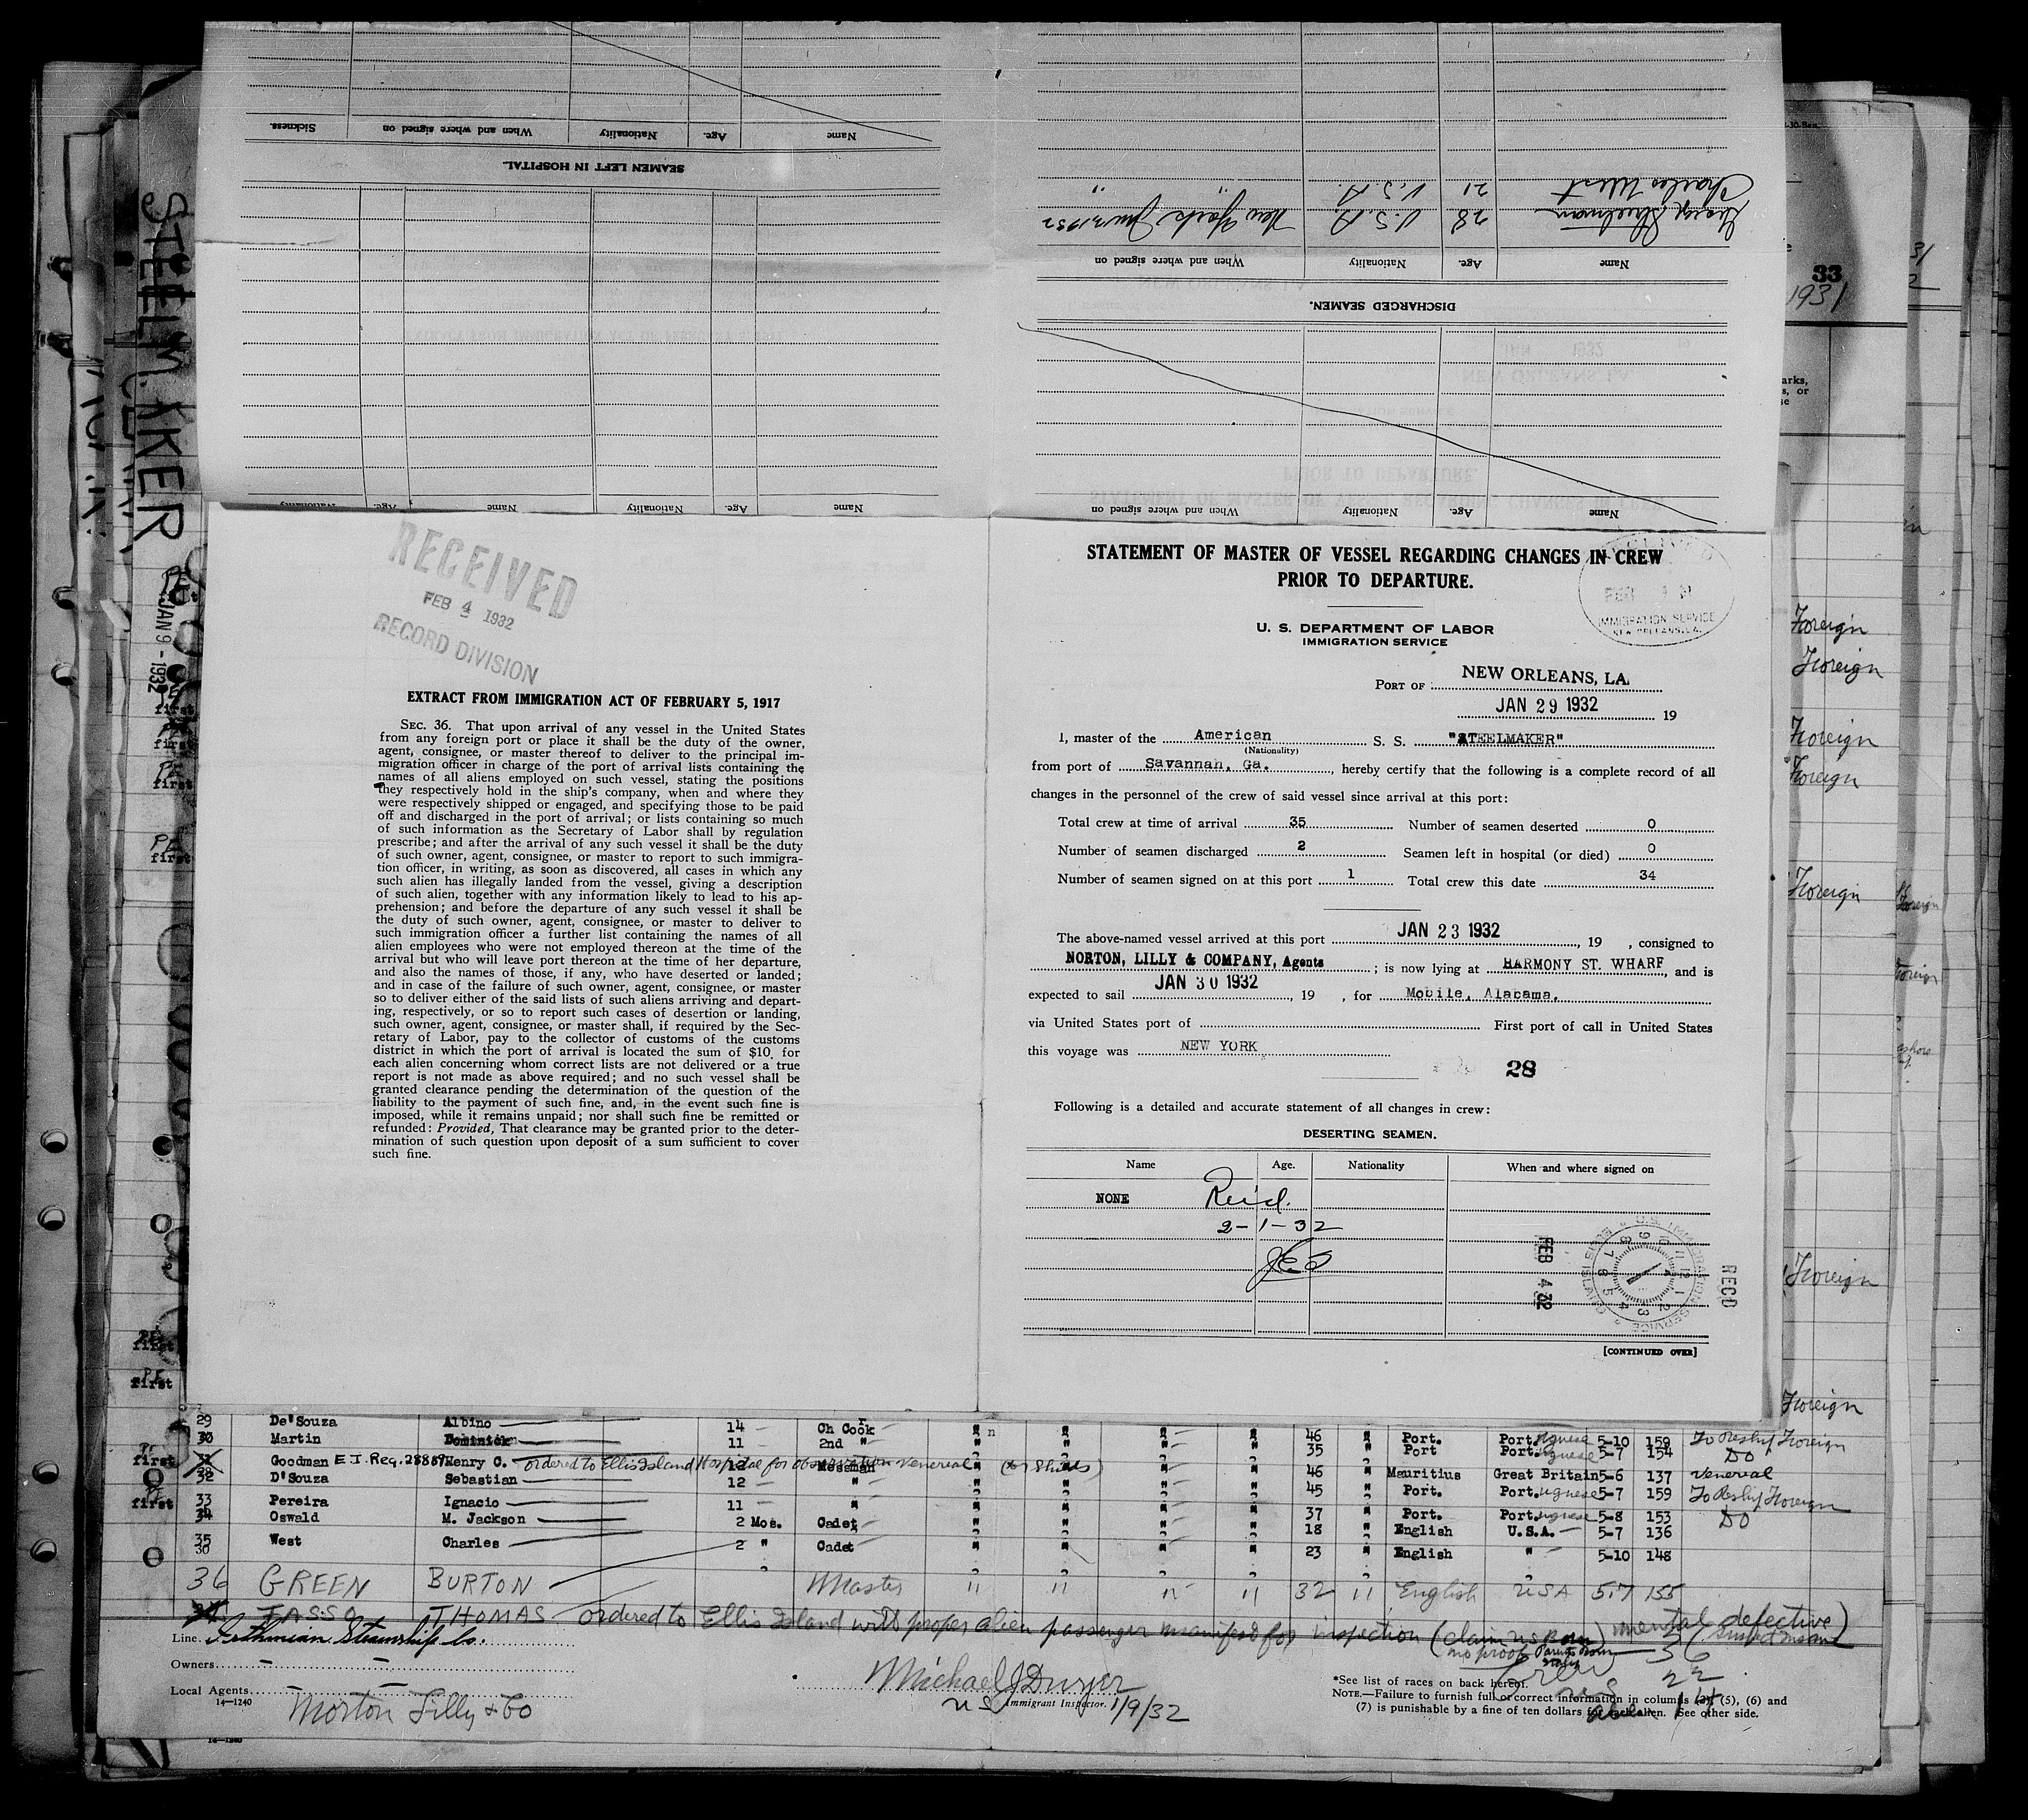 Sickness.
When and where signed on
Nationality
Age.
Name
SEAMEN LEFT IN HOSPITAL.
Charles West 21 U.S.A. " "
28 U.S.A. New York Jan 2 1932
Name
Age.
Nationality
When and where signed on
DISCHARGED SEAMEN.
Nationality
Age.
Name
Nationality
Age.
Name
When and where signed on
Nationality
Age.
Name
33
1931
RECEIVED
FEB 4 1932
RECORD DIVISION
EXTRACT FROM IMMIGRATION ACT OF FEBRUARY 5, 1917
SEC. 36. That upon arrival of any vessel in the United States
from any foreign port or place it shall be the duty of the owner,
agent, consignee, or master thereof to deliver to the principal im-
migration officer in charge of the port of arrival lists containing the
names of all aliens employed on such vessel, stating the positions
they respectively hold in the ship's company, when and where they
were respectively shipped or engaged, and specifying those to be paid
off and discharged in the port of arrival; or lists containing so much
of such information as the Secretary of Labor shall by regulation
prescribe; and after the arrival of any such vessel it shall be the duty
of such owner, agent, consignee, or master to report to such immigra-
tion officer, in writing, as soon as discovered, all cases in which any
such alien has illegally landed from the vessel, giving a description
of such alien, together with any information likely to lead to his ap-
prehension; and before the departure of any such vessel it shall be
the duty of such owner, agent, consignee, or master to deliver to
such immigration officer a further list containing the names of all
alien employees who were not employed thereon at the time of the
arrival but who will leave port thereon at the time of her departure,
and also the names of those, if any, who have deserted or landed;
and in case of the failure of such owner, agent, consignee, or master
so to deliver either of the said lists of such aliens arriving and depart-
ing, respectively, or so to report such cases of desertion or landing,
such owner, agent, consignee, or master shall, if required by the Sec-
retary of Labor, pay to the collector of customs of the customs
district in which the port of arrival is located the sum of $10 for
each alien concerning whom correct lists are not delivered or a true
report is not made as above required; and no such vessel shall be
granted clearance pending the determination of the question of the
liability to the payment of such fine, and, in the event such fine is
imposed, while it remains unpaid; nor shall such fine be remitted or
refunded: Provided, That clearance may be granted prior to the deter-
mination of such question upon deposit of a sum sufficient to cover
such fine.
STATEMENT OF MASTER OF VESSEL REGARDING CHANGES IN CREW
PRIOR TO DEPARTURE.
IMMIGRATION SERVICE
NEW ORLEANS, LA.
U. S. DEPARTMENT OF LABOR
IMMIGRATION SERVICE
PORT OF NEW ORLEANS, LA.
JAN 29 1932 19
I, master of the American S. S. "STEELMAKER"
(Nationality)
from port of Savannah, Ga., hereby certify that the following is a complete record of all
changes in the personnel of the crew of said vessel since arrival at this port:
Total crew at time of arrival 35 Number of seamen deserted 0
Number of seamen discharged 2 Seamen left in hospital (or died) 0
Number of seamen signed on at this port 1 Total crew this date 34
The above-named vessel arrived at this port JAN 23 1932, 19 , consigned to
NORTON, LILLY & COMPANY, Agents ; is now lying at HARMONY ST. WHARF, and is
expected to sail JAN 30 1932, 19 , for Mobile, Alabama.
via United States port of First port of call in United States
this voyage was NEW YORK
28
Following is a detailed and accurate statement of all changes in crew:
DESERTING SEAMEN.
Name Age. Nationality When and where signed on
NONE
2-1-32
FEB 4 32
RECD
U.S. IMMIGRATION SERVICE ELLIS ISLAND
[CONTINUED OVER]
JAN 9 - 1932
Foreign
Foreign
Foreign
Foreign
Foreign
Foreign
Foreign
first
first
first
first
first
first
first
first
29 De'Souza Albino 14 Ch Cook " " " " 46 " Port. Portuguese 5-10 159 To Reship Foreign
30 Martin 11 2nd " " " " " 35 " Port Portuguese 5-7 154 DO
Goodman E.I. Req. 28889 Henry C. ordered to Ellis Island Hospital for observation venereal Messman 46 " Mauritius Great Britain 5-6 137 venereal
32 D'Souza Sebastian 12 " " " " " 45 " Port. Portuguese 5-7 159 To Reship Foreign
33 Pereira Ignacio 11 " " " " " 37 " Port. Portuguese 5-8 153 DO
34 Oswald M. Jackson 2 Mos. Cadet " " " " 18 " English U.S.A. 5-7 136
35 West Charles 2 " Cadet " " " " 23 " English " 5-10 148
36 GREEN BURTON Master " " " " 32 " English USA 5-7 155
TASSO THOMAS ordered to Ellis Island with proper alien passenger manifest for inspection (claim US Born) mental defective)
no proof
Line. Isthmian Steamship Co.
Owners
Local Agents
Norton Lilly & Co
14—1240
Michael J Dwyer
US Immigrant Inspector. 1/9/32
*See list of races on back hereof.
NOTE.—Failure to furnish full or correct information in columns (5), (6) and
(7) is punishable by a fine of ten dollars for each alien. See other side.